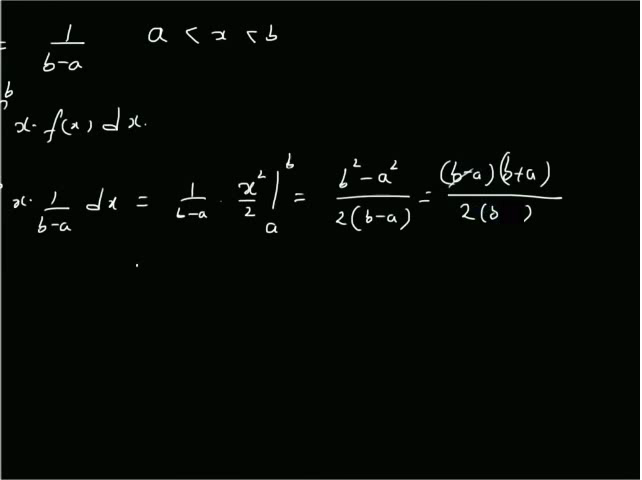 = 1/(b-a) a < x < b
b
x. f(x) dx.
x. 1/(b-a) dx = 1/(b-a) . x²/2 |ₐᵇ = (b²-a²)/(2(b-a)) = ((b-a)(b+a))/(2(b ))